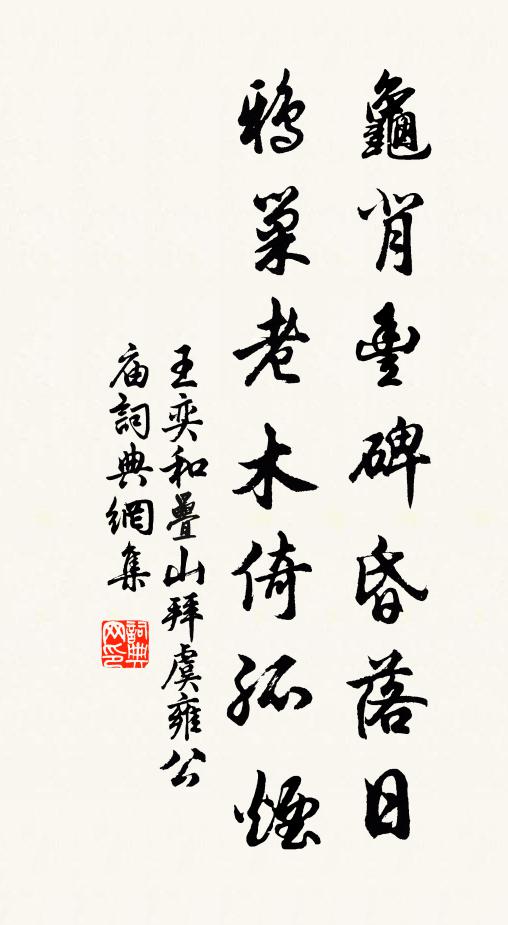 龜背豐碑昏落日
鴉巢老木倚孤煙
王奕和疊山拜虞雍公
廟詞典網集
詞典
网印